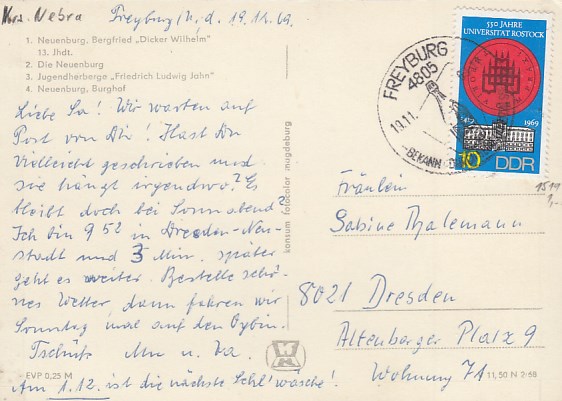 Krs. Nebra
Freyburg/U, d. 19.11.69.
1. Neuenburg, Bergfried „Dicker Wilhelm"
13. Jhdt.
2. Die Neuenburg
3. Jugendherberge „Friedrich Ludwig Jahn"
4. Neuenburg, Burghof
Liebe Sa! Wir warten auf
Post von Dir! Hast Du
vielleicht geschrieben und
sie hängt irgendwo? Es
bleibt doch bei Sonnabend?
Ich bin 9 52 in Dresden-Neu-
stadt und 3 Min. später
geht es weiter. Bestelle schö-
nes Wetter, dann fahren wir
Sonntag mal auf den Oybin.
Tschüß Mu u. Va.
EVP 0,25 M
Am 1.12. ist die nächste Schl'wäsche!
konsum fotocolor magdeburg
FREYBURG
4805
19.11.
BEKANN
550 JAHRE
UNIVERSITÄT ROSTOCK
1419 1969
10 DDR
1519
1,-
Fräulein
Sabine Thalemann
8021 Dresden
Altenberger Platz 9
Wohnung 71
11,50 N 2-68